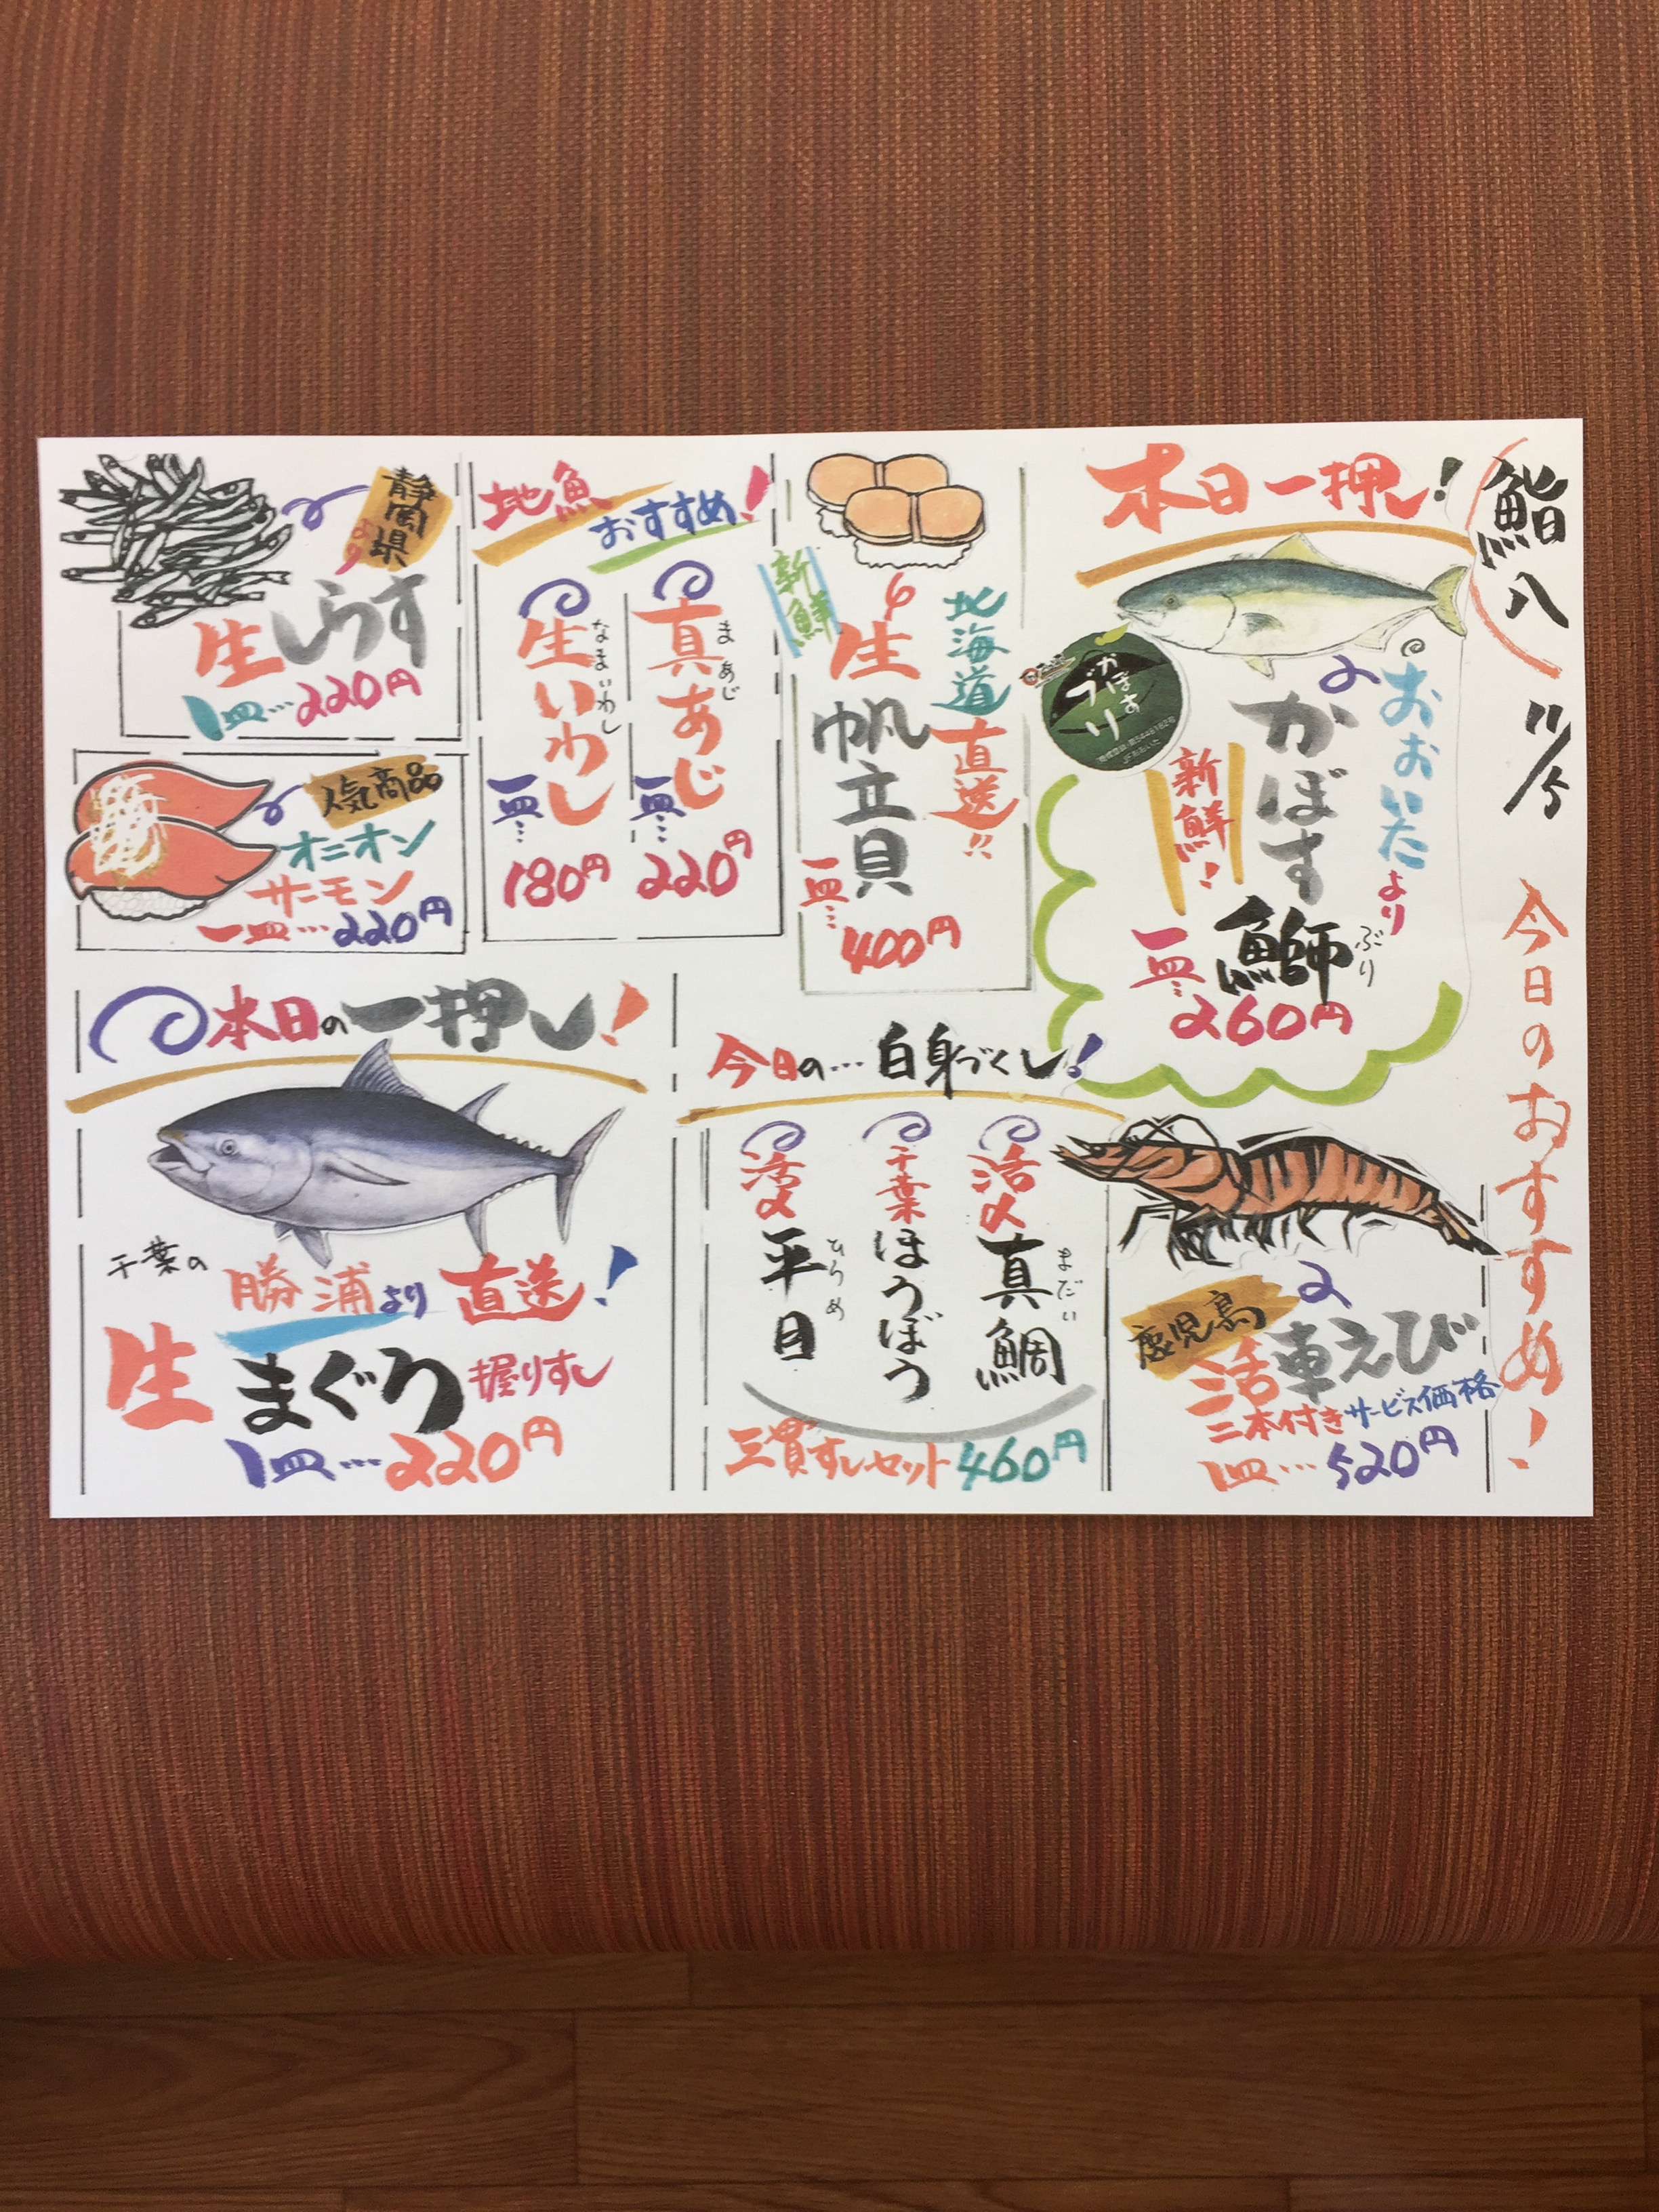 鮨八
11/5
今日のおすすめ!
本日一押し!
おおいたより
かぼす鰤
ぶり
新鮮!
一皿…
260円
かぼす
ブリ
北海道直送!!
生帆立貝
新鮮
一皿…
400円
地魚
おすすめ!
真あじ
まあじ
一皿…
220円
生いわし
なまいわし
一皿…
180円
静岡県
より
生しらす
1皿…220円
人気商品
オニオン
サーモン
一皿…220円
鹿児島
活車えび
二本付きサービス価格
1皿…520円
今日の…白身づくし!
活〆真鯛
まだい
千葉ほうぼう
活〆平目
ひらめ
三貫すしセット460円
本日の一押し!
千葉の
勝浦より直送!
生まぐろ握りすし
1皿…220円